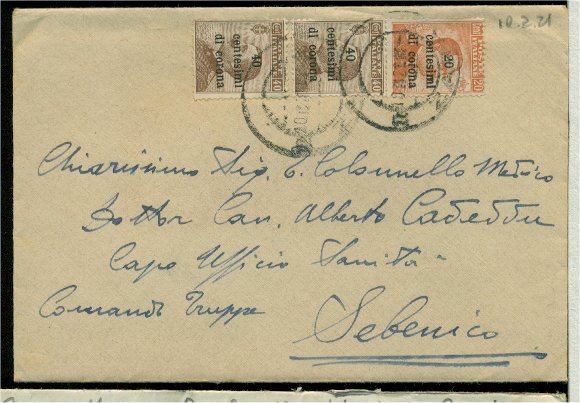 10.2.21
40
centesimi
di corona
40
centesimi
di corona
20
centesimi
di corona
Chiarissimo Sig. Colonnello Medico
Dottor Cav. Alberto Cadeddu
Capo Ufficio Sanità
Comando Truppe
Sebenico